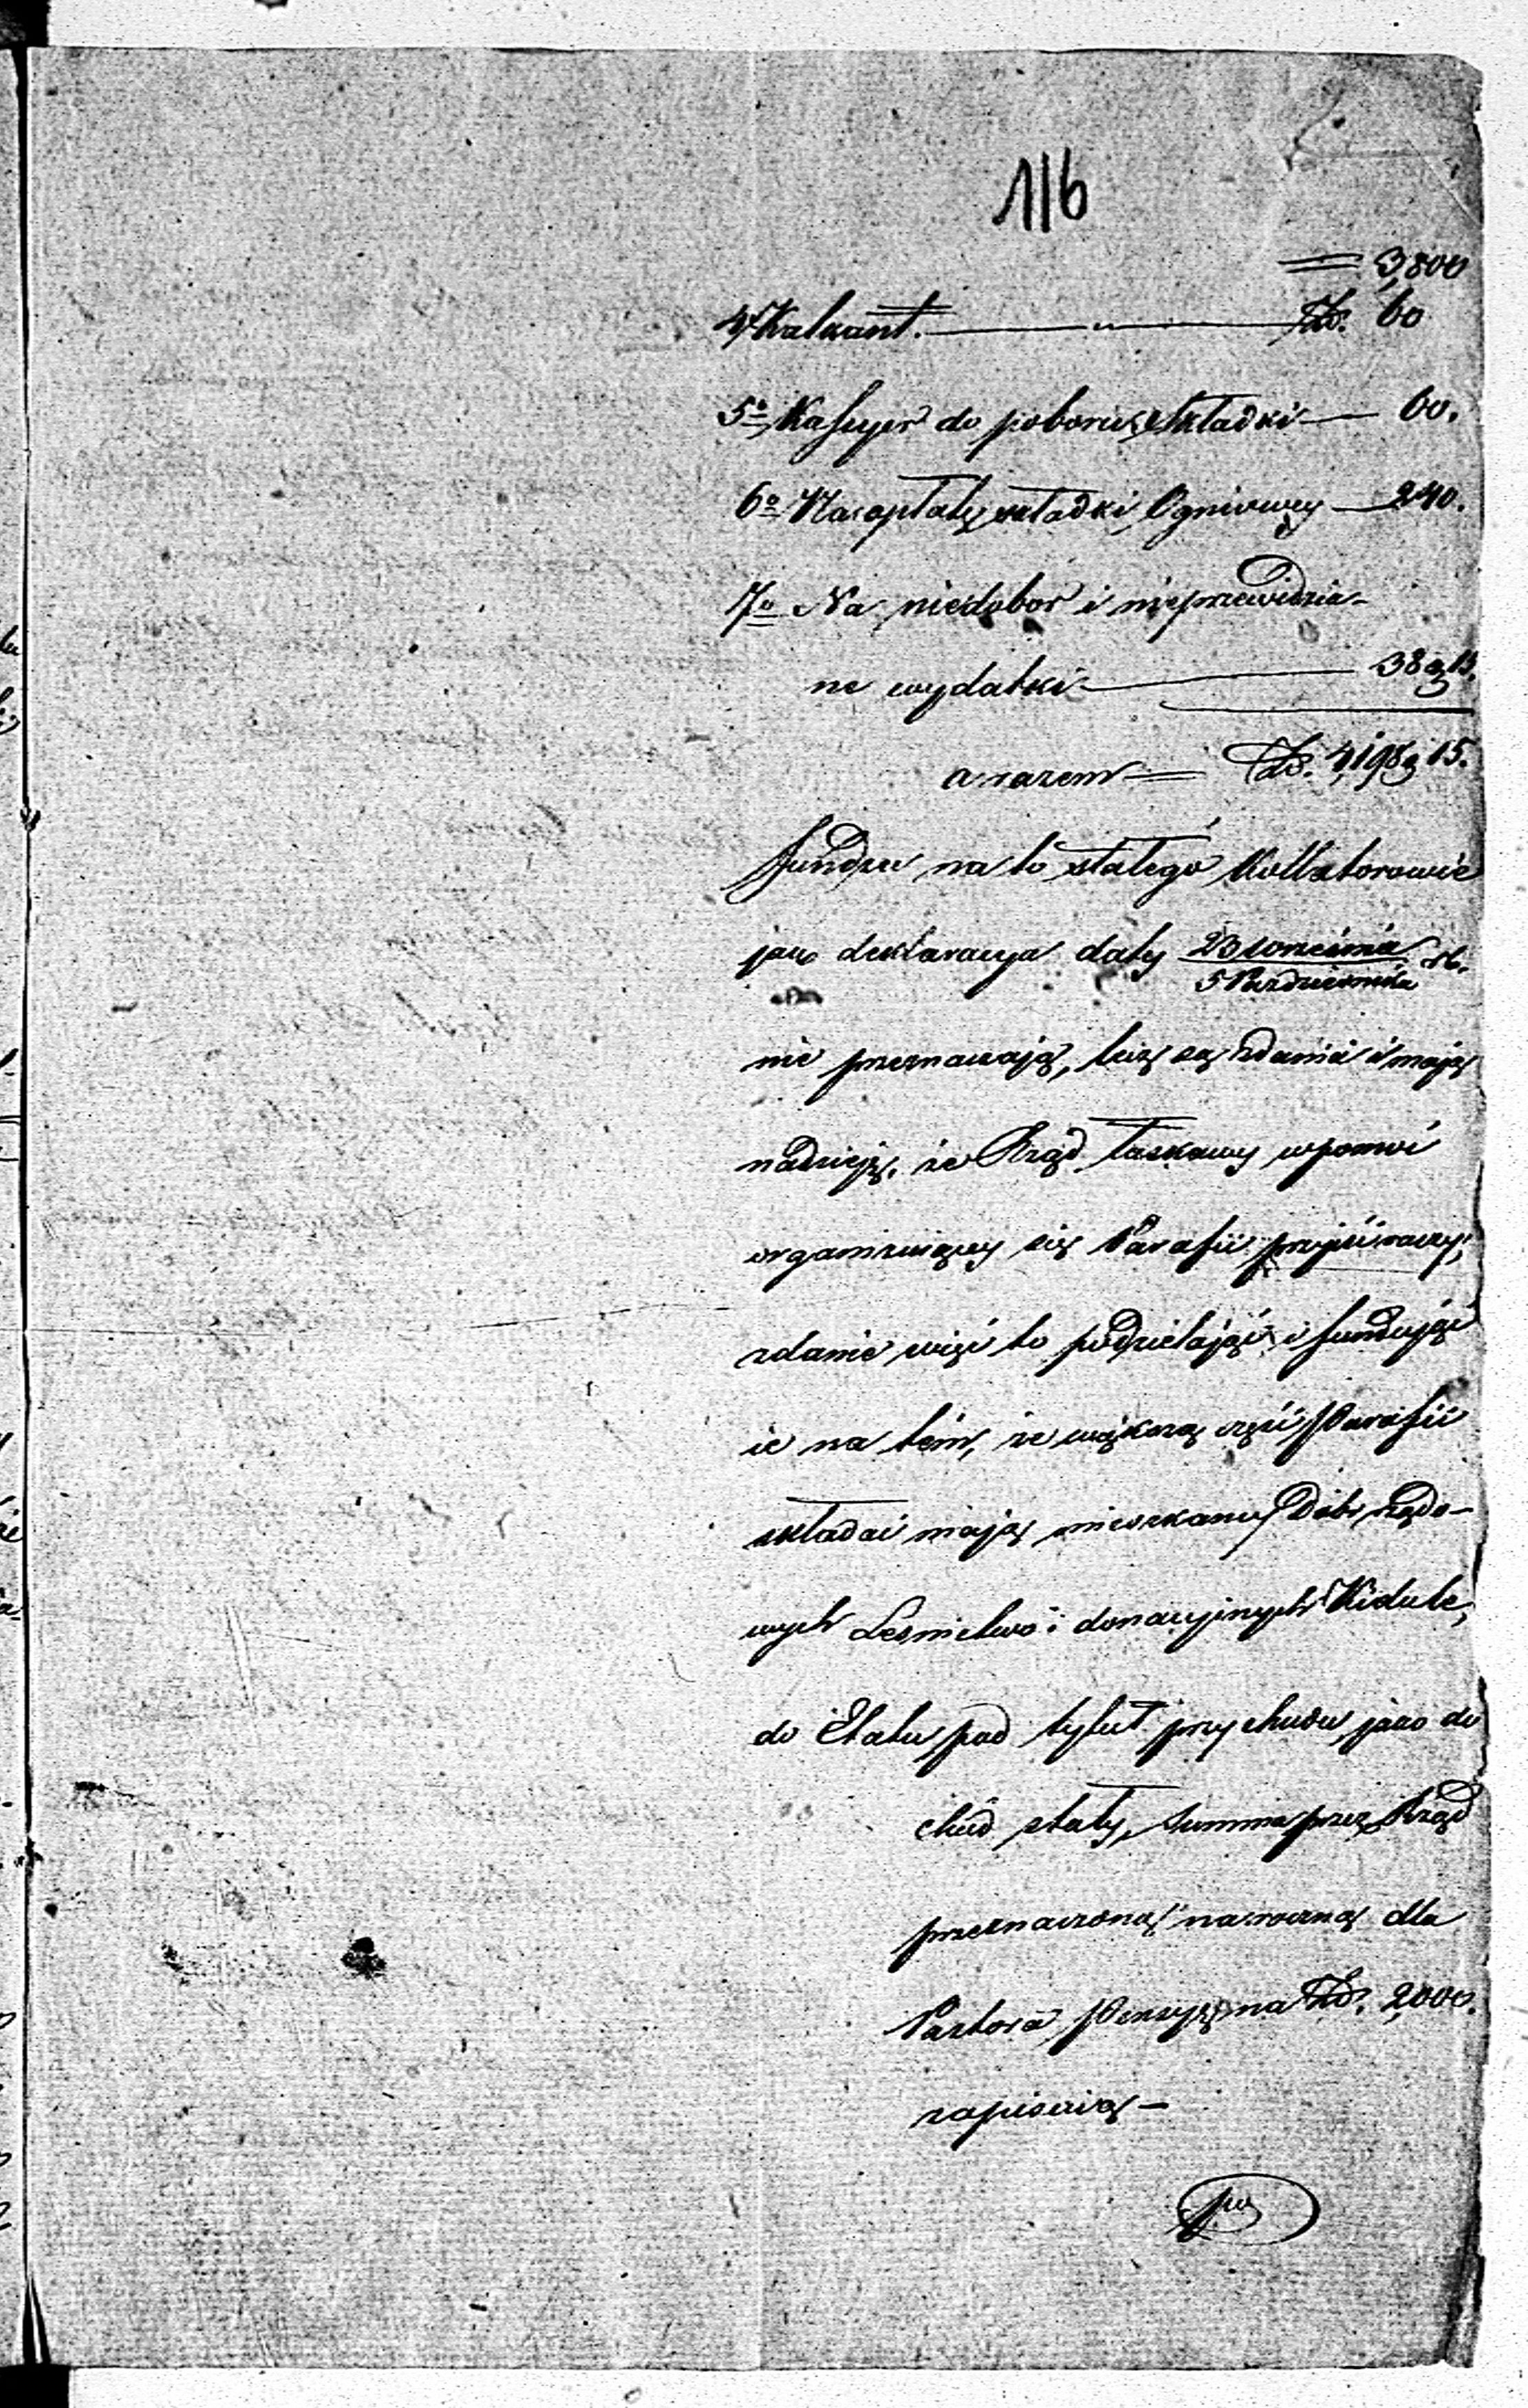 116
= 3,800
4° Kalkant. — „ — Zł. 60
5° Kassyer do poboru składki — 60.
6° Na opłatę składki Ogniowey — 240.
7° Na niedobor i nieprzewidzia-
ne wydatki — 38 g 15.
a razem = Zł. 4,198 g 15.
funduszu na to stałego Kollatorowie
jak deklaracya daty 23 wrześnią / 5 Październiká rb.
nie przeznaczają, lecz są zdania i mają
nadzieję, że Rząd łaskawy w pomoc
organizuiącey się Parafii przyiść raczy;
zdanie więc to podzielając i funduiąc
ie na tém, że większą część Parafii
składać mają mieszkańcy Dóbr rządo-
wych Leśnictwo i donacyjnych Kidule,
do Etatu pod tytuł przychodu, jako do
chód stały, summę przez Rząd
przeznaczoną na roczną dla
Pastora Pensyę na Zł. 2,000.
zapisuią —